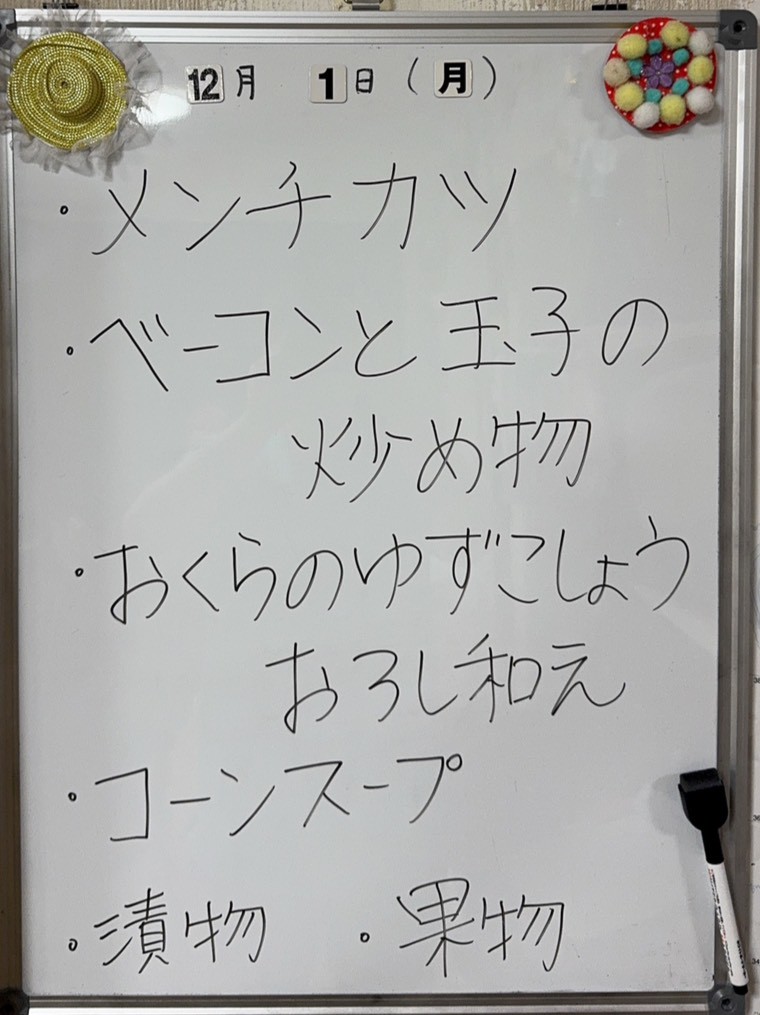 12月 1日(月)
・メンチカツ
・ベーコンと玉子の
炒め物
・おくらのゆずこしょう
おろし和え
・コーンスープ
・漬物 ・果物